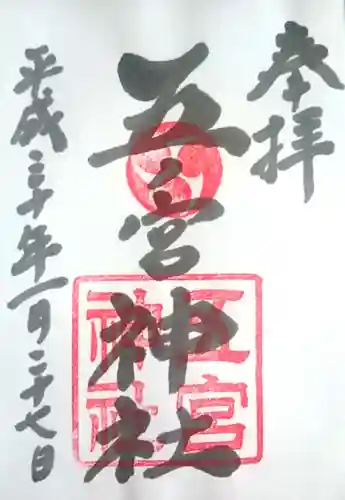 奉拝
五之宮神社
五宮神社
平成三十年一月二十七日